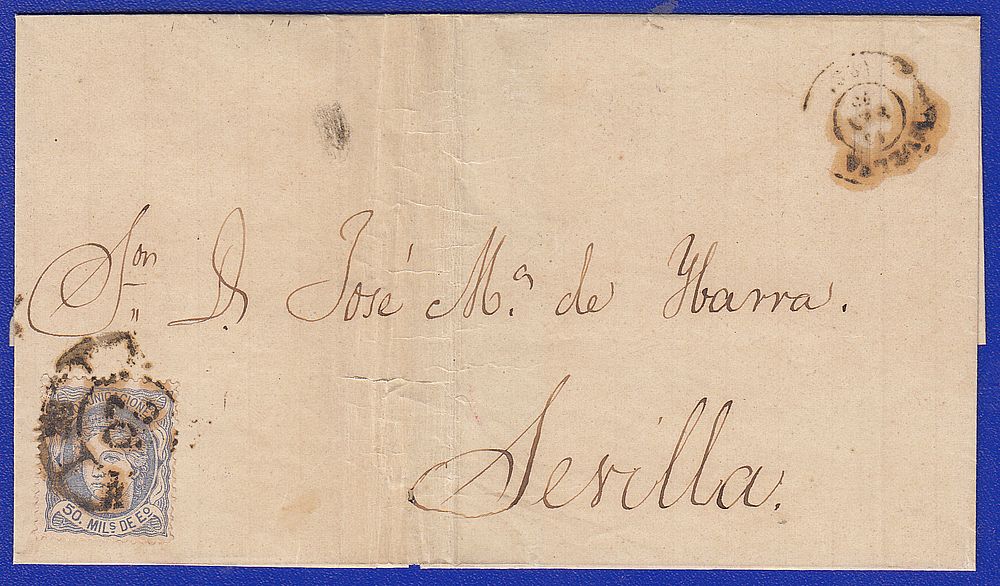 HUELVA
Sr. D. José Mª. de Ybarra.
Sevilla.
COMUNICACIONES
50. MILS DE Eº